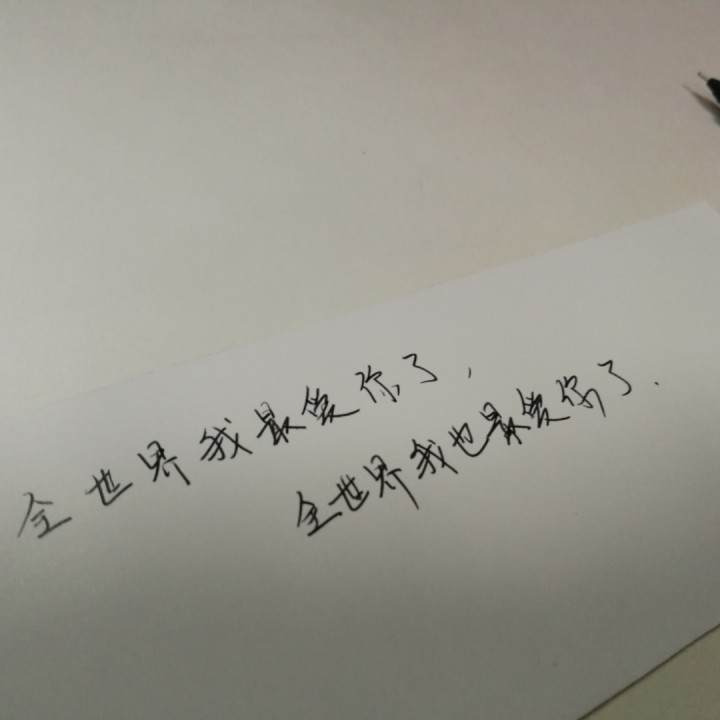 全世界我最爱你了，
全世界我也最爱你了.